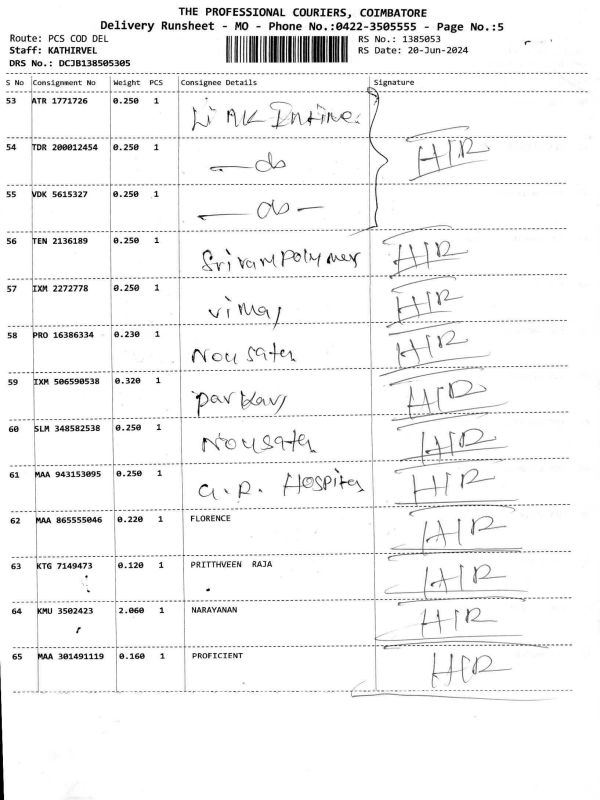 THE PROFESSIONAL COURIERS, COIMBATORE
Delivery Runsheet - MO - Phone No.:0422-3505555 - Page No.:5
Route: PCS COD DEL RS No.: 1385053
Staff: KATHIRVEL RS Date: 20-Jun-2024
DRS No.: DCJB138505305
S No Consignment No Weight PCS Consignee Details Signature
53 ATR 1771726 0.250 1
54 TDR 200012454 0.250 1 do H/R
55 VDK 5615327 0.250 1 do
56 TEN 2136189 0.250 1 Sriram Polymer H/R
57 IXM 2272778 0.250 1 H/R
58 PRO 16386334 0.230 1 H/R
59 IXM 506590538 0.320 1 H/R
60 SLM 348582538 0.250 1 H/R
61 MAA 943153095 0.250 1 Hospital H/R
62 MAA 865555046 0.220 1 FLORENCE H/R
63 KTG 7149473 0.120 1 PRITTHVEEN RAJA H/R
64 KMU 3502423 2.060 1 NARAYANAN H/R
65 MAA 301491119 0.160 1 PROFICIENT H/R